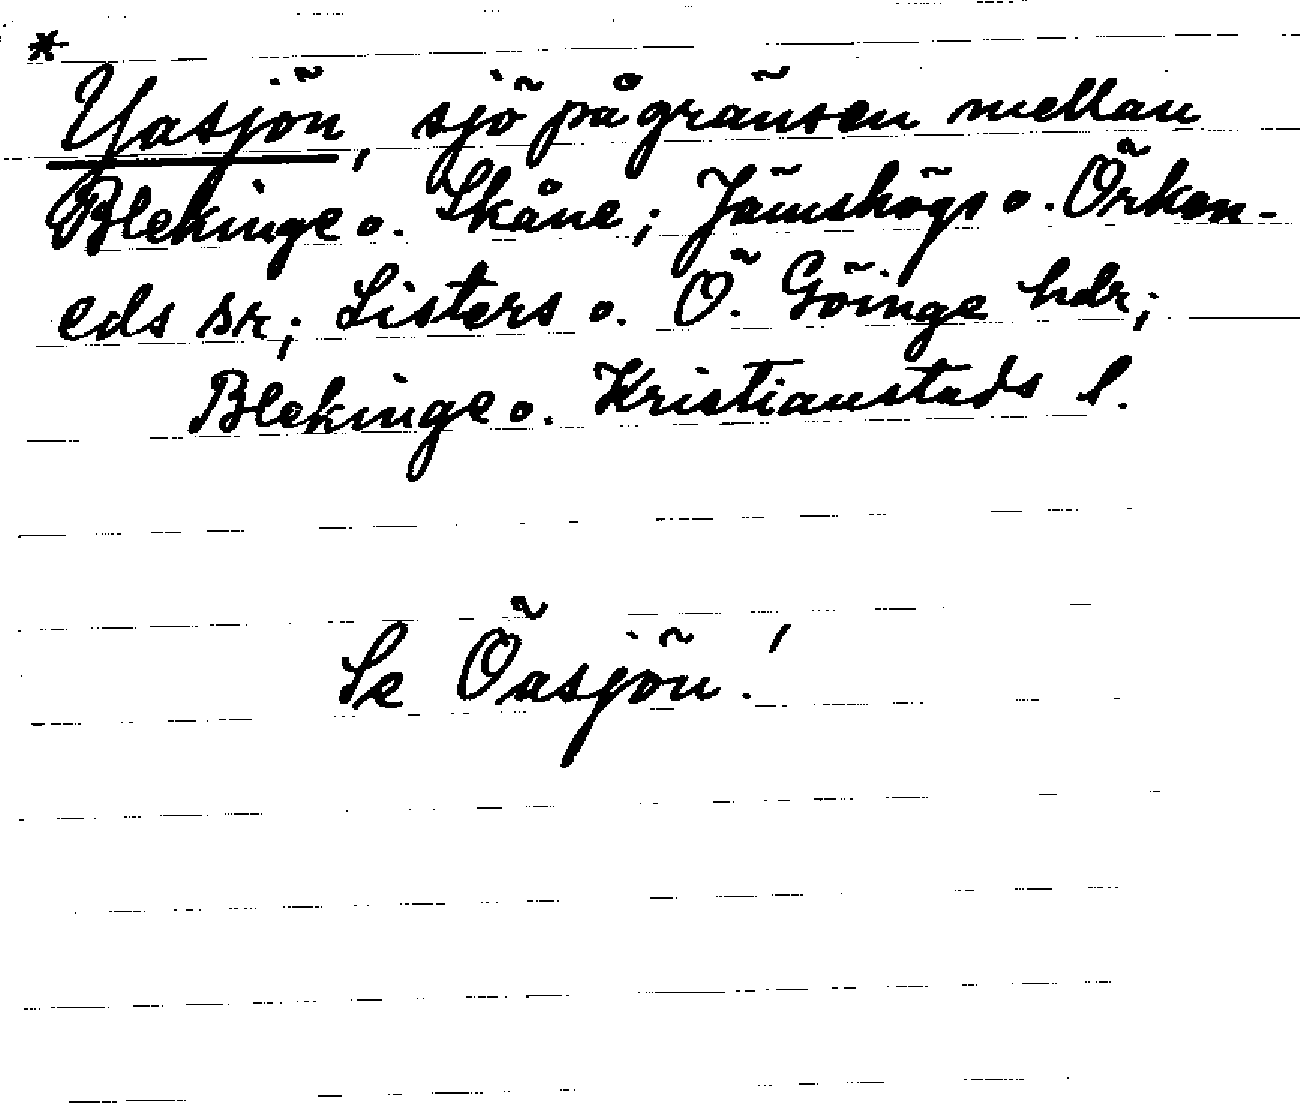 *
Yasjön, sjö på gränsen mellan
Blekinge o. Skåne; Jämshögs o. Örken-
eds sn; Listers o. Ö. Göinge hdr;
Blekinge o. Kristianstads l.
Se Öasjön!